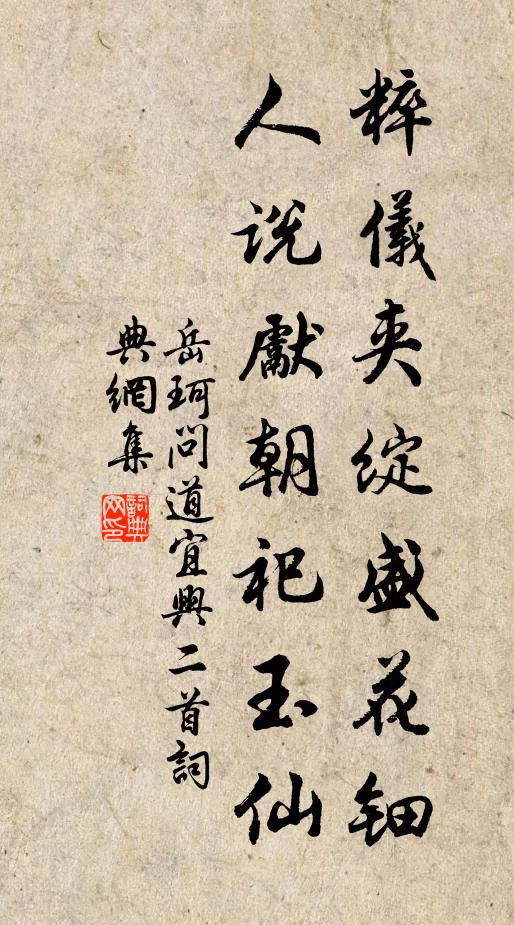 粹儀夾綻盛花鈿
人說獻朝祀玉仙
岳珂問道宜興二首詞
典網集
詞典
网印